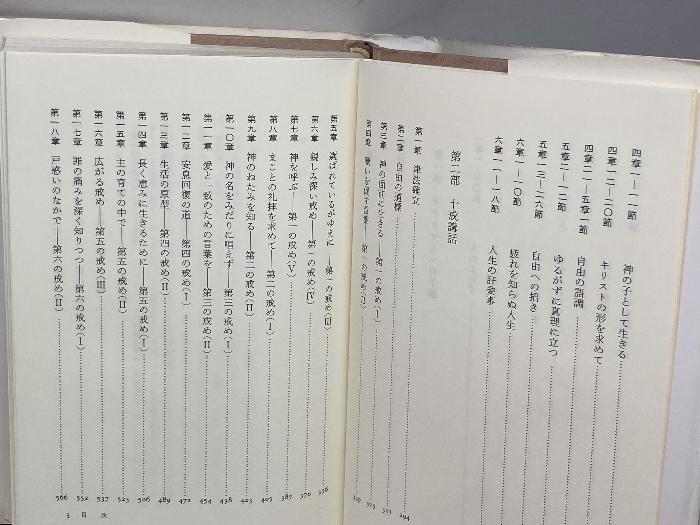 四章一—一一節　神の子として生きる
四章一二—二〇節　キリストの形を求めて
四章二一—五章一節　自由の
五章二—一二節　ゆるがずに真理に立つ
五章一三—二六節　自由への招き
六章一—一〇節　疲れを知らぬ人生
六章一一—一八節　人生の肝要事
第二部　十戒講話
第一章　律法確立 294
第二章　自由の道標
第三章　神の面前に生きる——第一の戒め(Ⅰ) 323
第四章　戦いを促す言葉——第一の戒め(Ⅱ) 339
第五章　選ばれているがゆえに——第一の戒め(Ⅲ) 356
第六章　親しみ深い戒め——第一の戒め(Ⅳ) 370
第七章　神を呼ぶ——第一の戒め(Ⅴ) 387
第八章　まことの礼拝を求めて——第二の戒め(Ⅰ) 405
第九章　神のねたみを知る——第二の戒め(Ⅱ) 423
第一〇章　神の名をみだりに唱えず——第三の戒め(Ⅰ) 438
第一一章　愛と一致のための言葉を——第三の戒め(Ⅱ) 454
第一二章　安息回復の道——第四の戒め(Ⅰ) 472
第一三章　生活の原型——第四の戒め(Ⅱ) 489
第一四章　長く恵みに生きるために——第五の戒め(Ⅰ) 506
第一五章　主の育ての中で——第五の戒め(Ⅱ) 523
第一六章　広がる戒め——第五の戒め(Ⅲ) 537
第一七章　罪の痛みを深く知りつつ——第六の戒め(Ⅰ) 552
第一八章　戸惑いのなかで——第六の戒め(Ⅱ) 566
3　目　次